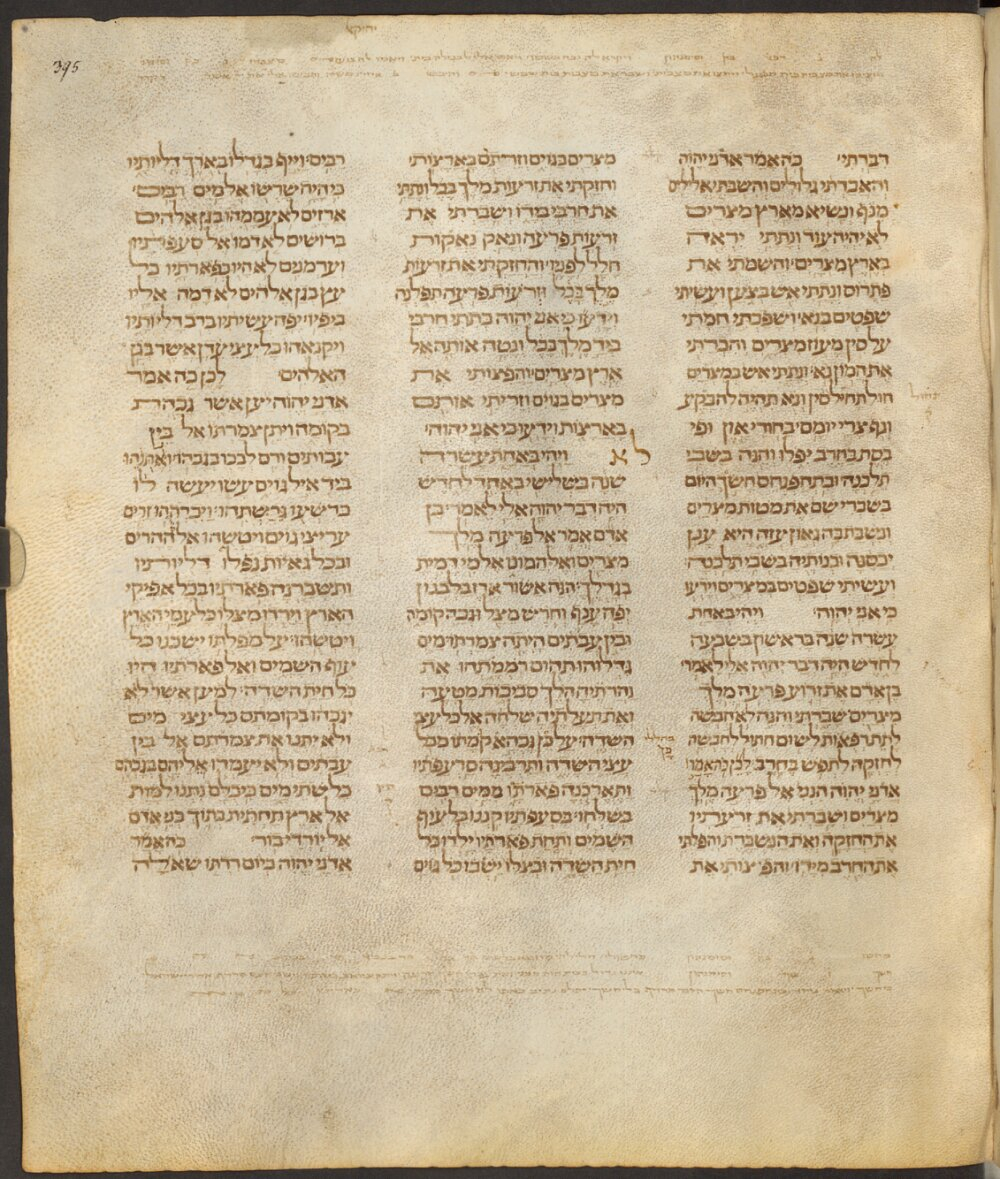 יחזקאל
395
דברתי׃ כה אמר אדני יהוה
והאבדתי גלולים והשבתי אלילים
מנף ונשיא מארץ מצרים
לא יהיה עוד ונתתי יראה
בארץ מצרים׃ והשמתי את
פתרוס ונתתי אש בצען ועשיתי
שפטים בנא׃ ושפכתי חמתי
על סין מעוז מצרים והכרתי
את המון נא׃ ונתתי אש במצרים
חול תחיל סין ונא תהיה להבקע
ונף צרי יומם׃ בחורי און ופי
בסת בחרב יפלו והנה בשבי
תלכנה׃ ובתחפנחס חשך היום
בשברי שם את מטות מצרים
ונשבת בה גאון עזה היא ענן
יכסנה ובנותיה בשבי תלכנה׃
ועשיתי שפטים במצרים וידעו
כי אני יהוה׃ ויהי באחת
עשרה שנה בראשון בשבעה
לחדש היה דבר יהוה אלי לאמר׃
בן אדם את זרוע פרעה מלך
מצרים שברתי והנה לא חבשה
לתת רפאות לשום חתול לחבשה
לחזקה לתפש בחרב׃ לכן כה אמר
אדני יהוה הנני אל פרעה מלך
מצרים ושברתי את זרעתיו
את החזקה ואת הנשברת והפלתי
את החרב מידו׃ והפיצותי את
מצרים בגוים וזריתם בארצות׃
וחזקתי את זרעות מלך בבל ונתתי
את חרבי בידו ושברתי את
זרעות פרעה ונאק נאקות
חלל לפניו׃ והחזקתי את זרעות
מלך בבל וזרעות פרעה תפלנה
וידעו כי אני יהוה בתתי חרבי
ביד מלך בבל ונטה אותה אל
ארץ מצרים׃ והפצותי את
מצרים בגוים וזריתי אותם
בארצות וידעו כי אני יהוה׃
לא ויהי באחת עשרה
שנה בשלישי באחד לחדש
היה דבר יהוה אלי לאמר׃ בן
אדם אמר אל פרעה מלך
מצרים ואל המונו אל מי דמית
בגדלך׃ הנה אשור ארז בלבנון
יפה ענף וחרש מצל וגבה קומה
ובין עבתים היתה צמרתו׃ מים
גדלוהו תהום רממתהו את
נהרתיה הלך סביבות מטעה
ואת תעלתיה שלחה אל כל עצי
השדה׃ על כן גבהא קמתו מכל
עצי השדה ותרבינה סרעפתיו
ותארכנה פארתו ממים רבים
בשלחו׃ בסעפתיו קננו כל עוף
השמים ותחת פארתיו ילדו כל
חית השדה ובצלו ישבו כל גוים
רבים׃ וייף בגדלו בארך דליותיו
כי היה שרשו אל מים רבים׃
ארזים לא עממהו בגן אלהים
ברושים לא דמו אל סעפתיו
וערמנים לא היו כפארתיו כל
עץ בגן אלהים לא דמה אליו
ביפיו׃ יפה עשיתיו ברב דליותיו
ויקנאהו כל עצי עדן אשר בגן
האלהים׃ לכן כה אמר
אדני יהוה יען אשר גבהת
בקומה ויתן צמרתו אל בין
עבותים ורם לבבו בגבהו׃ ואתנהו
ביד איל גוים עשו יעשה לו
כרשעו גרשתהו׃ ויכרתהו זרים
עריצי גוים ויטשהו אל ההרים
ובכל גאיות נפלו דליותיו
ותשברנה פארתיו בכל אפיקי
הארץ וירדו מצלו כל עמי הארץ
ויטשהו׃ על מפלתו ישכנו כל
עוף השמים ואל פארתיו היו
כל חית השדה׃ למען אשר לא
יגבהו בקומתם כל עצי מים
ולא יתנו את צמרתם אל בין
עבתים ולא יעמדו אליהם בגבהם
כל שתי מים כי כלם נתנו למות
אל ארץ תחתית בתוך בני אדם
אל יורדי בור׃ כה אמר
אדני יהוה ביום רדתו שאולה